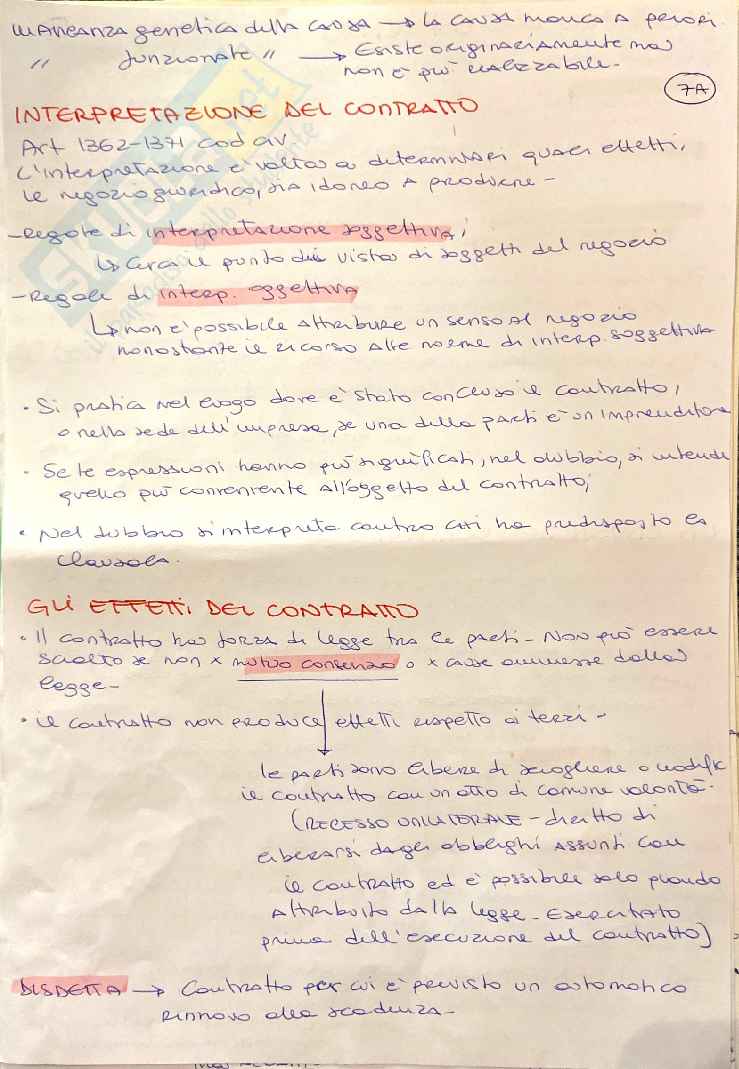 Mancanza genetica della causa → la causa manca a priori.
" funzionale " → Esiste originariamente ma
non è più realizzabile -
7A
INTERPRETAZIONE DEL CONTRATTO
Art 1362-1371 cod civ
L'interpretazione è volta a determinare quali effetti,
le negozio giuridico, sia idoneo a produrre -
- Regole di interpretazione soggettiva,
↳ cerca il punto di vista di soggetti del negozio
- Regole di interp. oggettiva
↳ non è possibile attribuire un senso al negozio
nonostante il ricorso alle norme di interp. soggettiva
• Si pratica nel luogo dove è stato concluso il contratto,
o nella sede dell'impresa, se una delle parti è un imprenditore
• Se le espressioni hanno più significati, nel dubbio, si intende
quello più conveniente all'oggetto del contratto;
• Nel dubbio si interpreta contro chi ha predisposto la
clausola.
GLI EFFETTI DEL CONTRATTO
• Il contratto ha forza di legge tra le parti - Non può essere
sciolto se non x mutuo consenso o x cause ammesse dalla
legge -
• il contratto non produce effetti rispetto ai terzi -
le parti sono libere di sciogliere o modific
il contratto con un atto di comune volontà.
(RECESSO UNILATERALE - diritto di
liberarsi dagli obblighi assunti con
il contratto ed è possibile solo quando
attribuito dalla legge - Esercitato
prima dell'esecuzione del contratto)
DISDETTA → Contratto per cui è previsto un automatico
rinnovo alla scadenza -